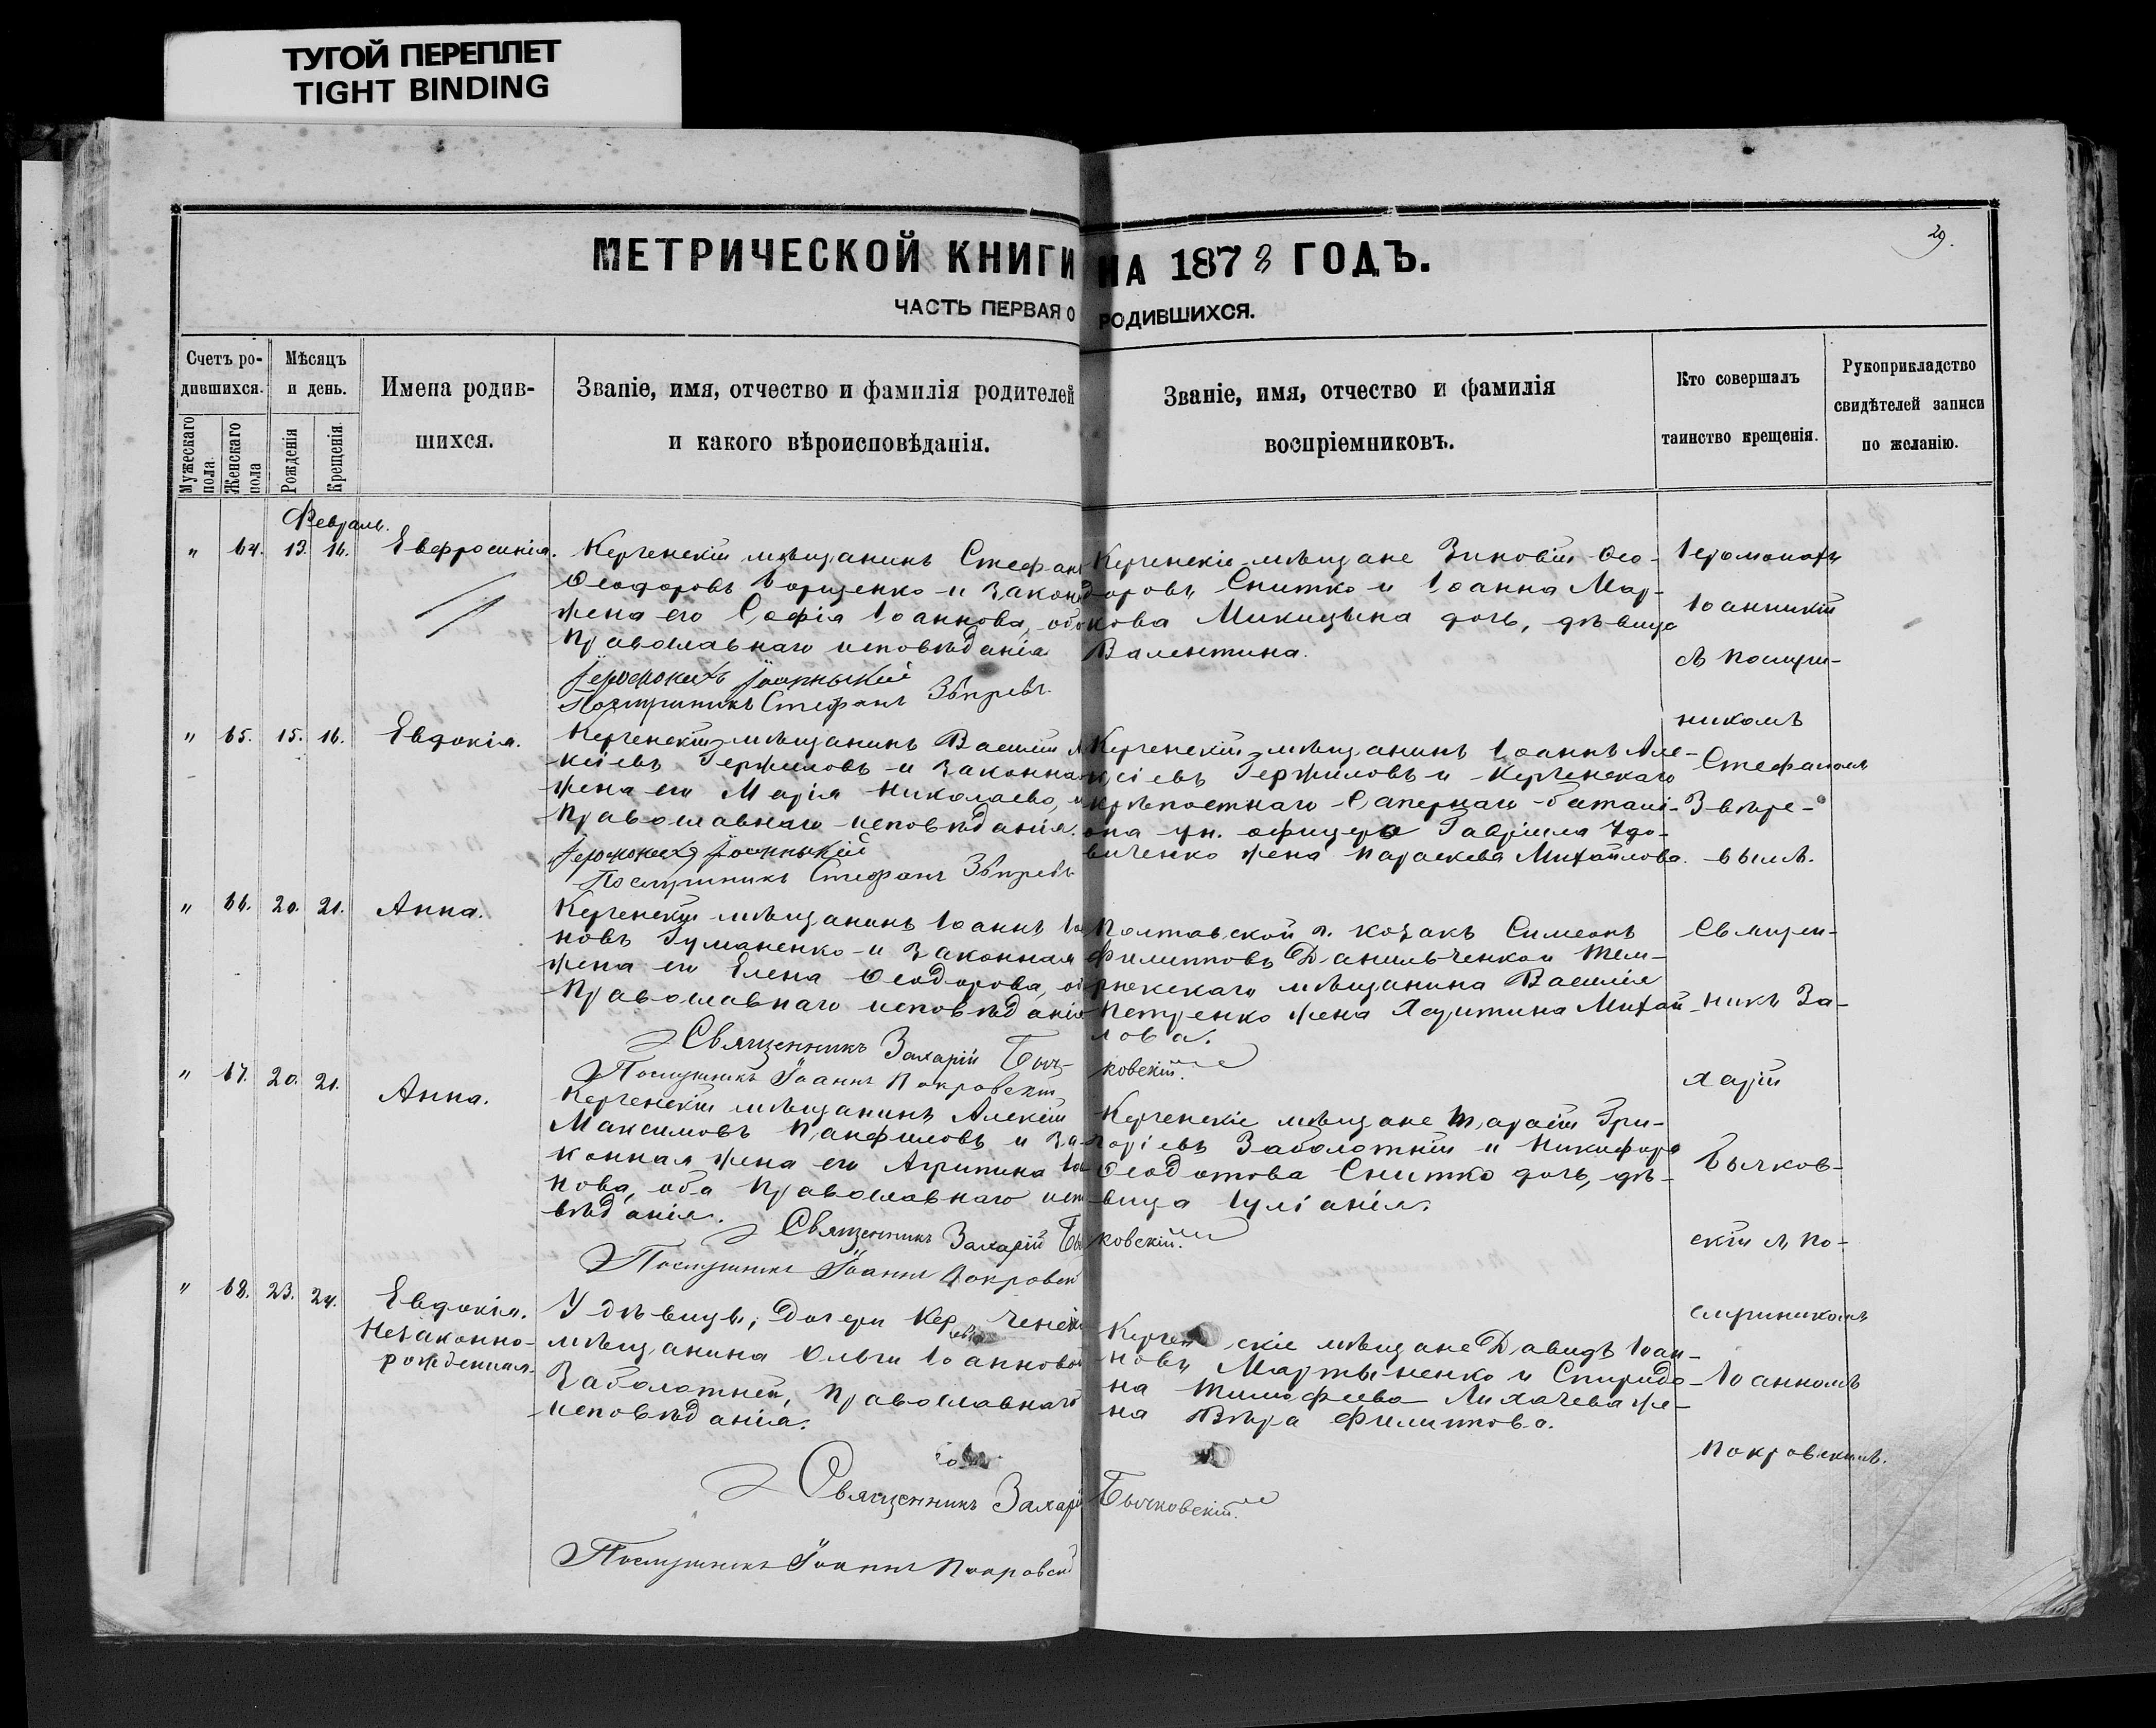 ТУГОЙ ПЕРЕПЛЕТ
TIGHT BINDING
29.
МЕТРИЧЕСКОЙ КНИГИ НА 1878 ГОДЪ.
ЧАСТЬ ПЕРВАЯ О РОДИВШИХСЯ.
Счетъ ро-
дившихся.
Мужескаго пола.
Женскаго пола
Мѣсяцъ
и день.
Рожденія
Крещенія.
Имена родив-
шихся.
Званіе, имя, отчество и фамилія родителей
и какого вѣроисповѣданія.
Званіе, имя, отчество и фамилія
воспріемниковъ.
Кто совершалъ
таинство крещенія.
Рукоприкладство
свидѣтелей записи
по желанію.
Февраль.
" 64. 13. 16. Евфросинія.
Керченскій мѣщанинъ Стефанъ
Ѳеодоровъ и закон
жена его Софія Іоаннова, обо
Православнаго исповѣданія
Іеромонахъ Іоанникій
Послушникъ Стефанъ Звѣревъ.
Керченскіе мѣщане Зиновій Ѳео-
доровъ Снитко и Іоанна Мар-
кова Микицына дочь, дѣвица
Валентина.
" 65. 15. 16. Евдокія.
Керченскій мѣщанинъ Василій А
ксіевъ Гержиловъ и законная
жена его Марія Николаева,
Православнаго исповѣданія.
Іеромонахъ Іоанникій
Послушникъ Стефанъ Звѣревъ
Керченскій мѣщанинъ Іоаннъ Але-
ксіевъ Гержиловъ и Керченскаго
крѣпостнаго Сапернаго баталі-
она ун. офицера Гавріила Удо-
виченко жена Параскева Михайлова.
Іеромонахъ
Іоанникій
съ послуш-
никомъ
Стефаномъ
Звѣре-
вымъ.
" 66. 20. 21. Анна.
Керченскій мѣщанинъ Іоаннъ Іоа
новъ Гуманенко и законная
жена его Елена Ѳеодорова, об
Православнаго исповѣданія
Священникъ Захарій Быч-
ковскій.
Послушникъ Іоаннъ Покровскій
Полтавской г. козакъ Симеонъ
Филипповъ Данильченко и Тем-
рюкскаго мѣщанина Василія
Петренко жена Харитина Михай-
лова.
" 67. 20. 21. Анна.
Керченскій мѣщанинъ Алексій
Максимовъ Панфиловъ и за-
конная жена его Агрипина Іоа
нова, оба Православнаго испо
вѣданія.
Священникъ Захарій Быч
ковскій.
Послушникъ Іоаннъ Покровск
Керченскіе мѣщане Тарасій Гри-
горіевъ Заболотній и Никифора
Ѳеодотова Снитко дочь, дѣ-
вица Іуліанія.
" 68. 23. 24. Евдокія.
Незаконно-
рожденная.
У дѣвицы, дочери Керченск
мѣщанина Ольги Іоанновой
Заболотней, Православнаго
исповѣданія.
Священникъ Захарій Бычковскій.
Послушникъ Іоаннъ Покровскій
Керченскіе мѣщане Давидъ Іоан-
новъ Мартыненко и Спиридо-
на Тимофеева Лихачева же-
на Вѣра Филиппова.
Священ-
никъ За-
харій
Бычков-
скій съ по-
слушникомъ
Іоанномъ
Покровскимъ.